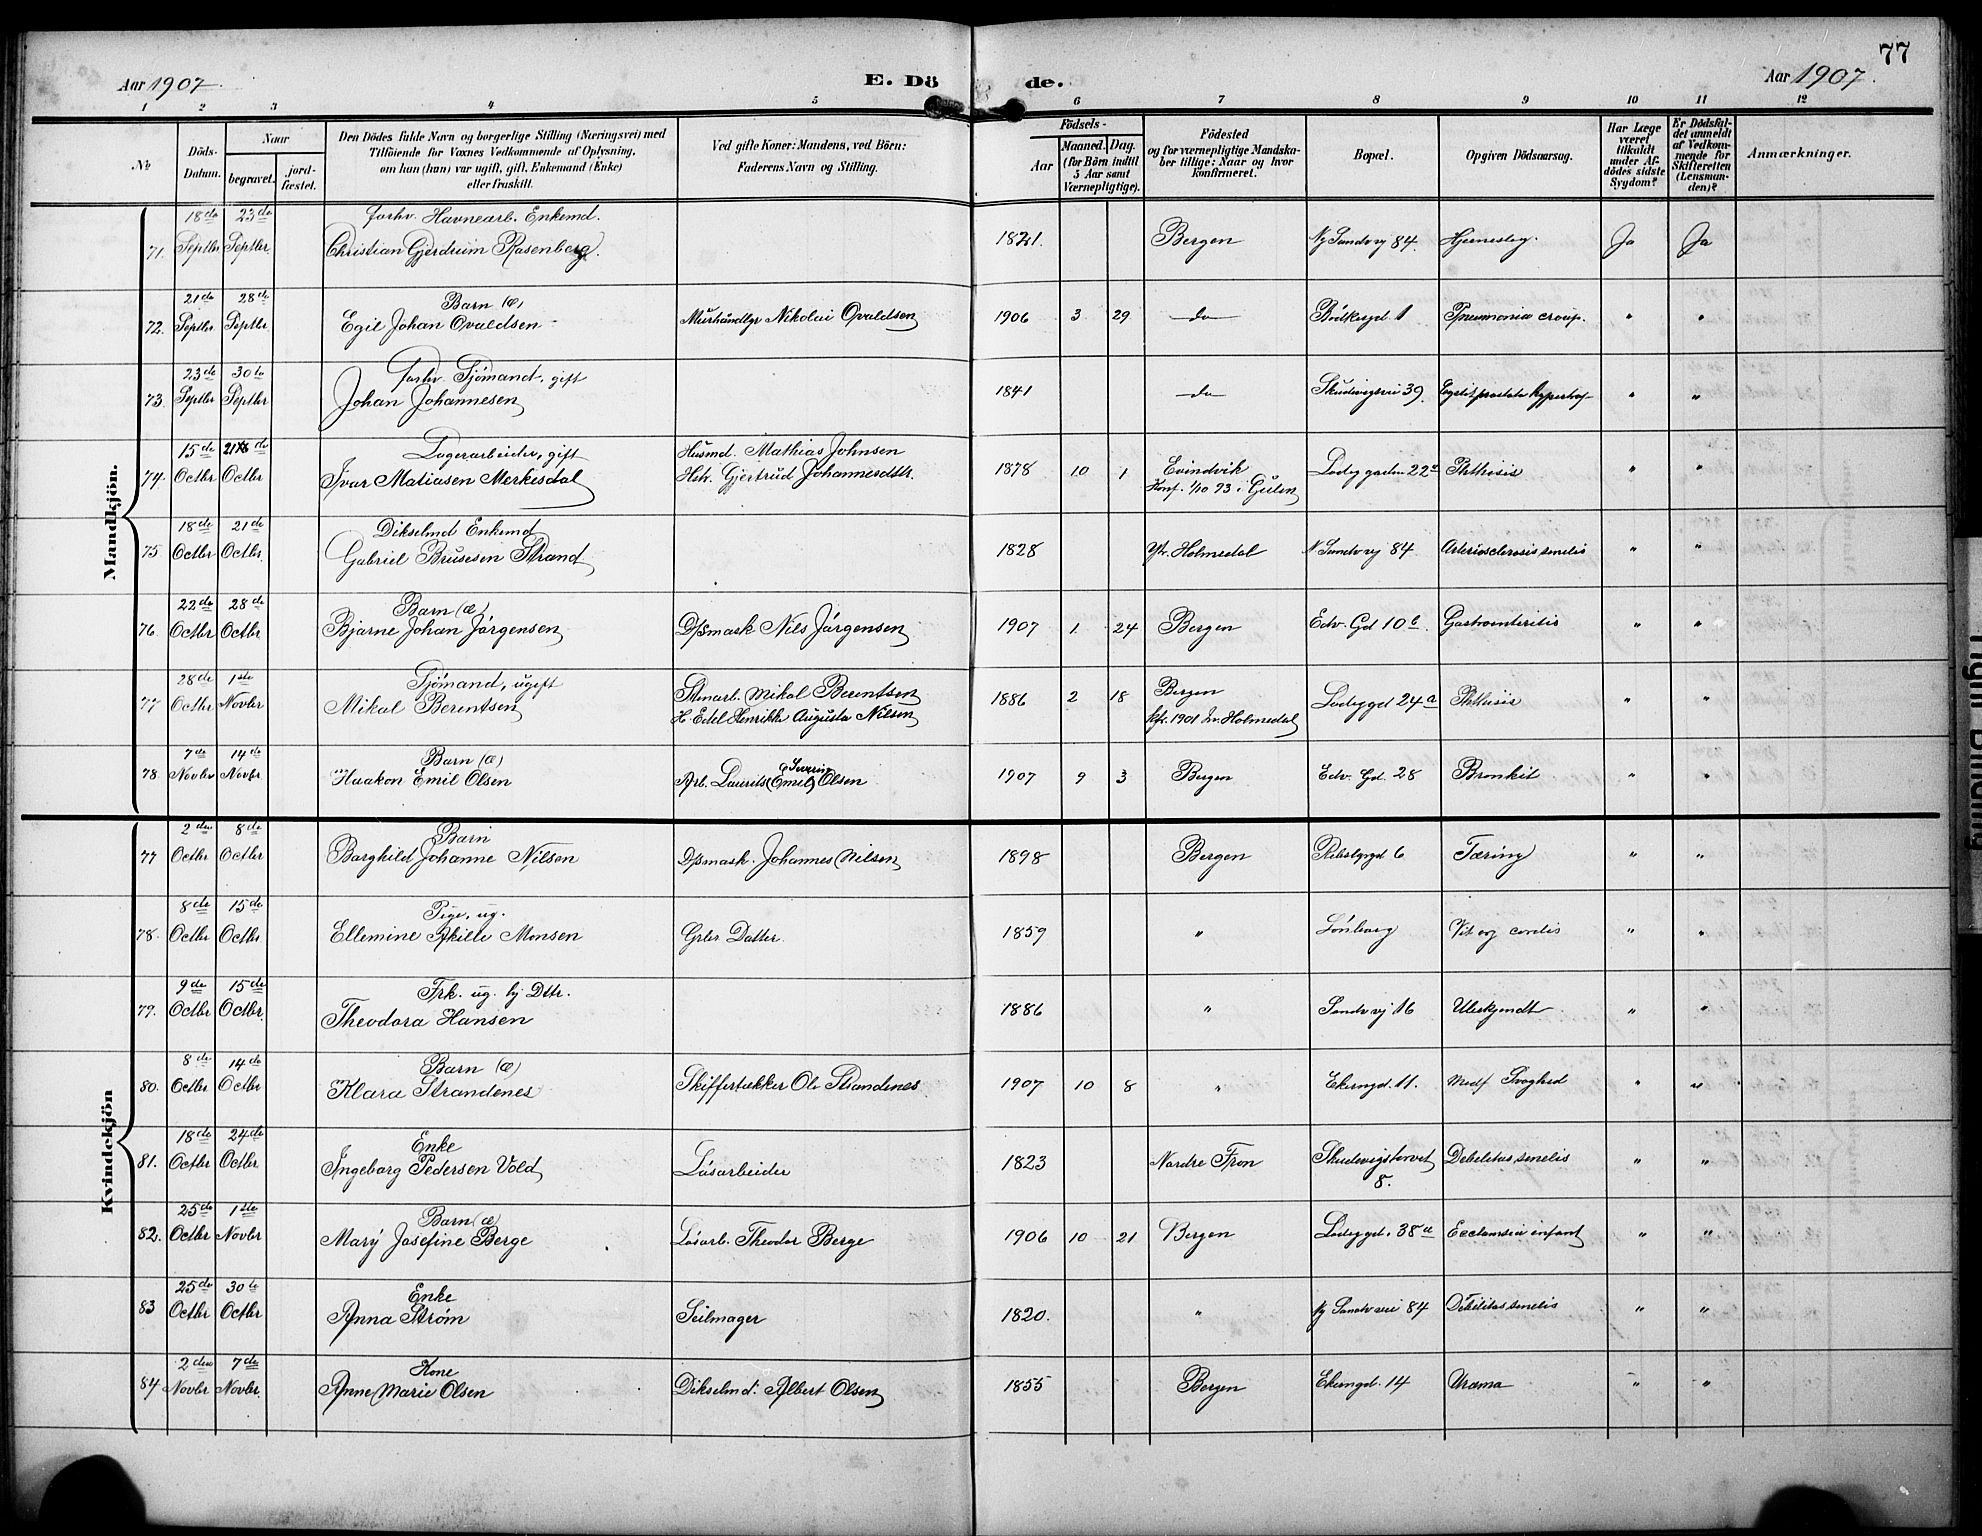 77
Aar 1907.
E. Dö de.
Aar 1907.
1 2 3 4 5 6 7 8 9 10 11 12
No
Döds-Datum.
Naar
begravet.
jord-fæstet.
Den Dödes fulde Navn og borgerlige Stilling (Næringsvei) med
Tilföiende for Voxnes Vedkommende af Oplysning,
om hun (han) var ugift, gift, Enkemand (Enke)
eller fraskilt.
Ved gifte Koner: Mandens, ved Börn:
Faderens Navn og Stilling.
Födsels-
Aar
Maaned. Dag.
(for Börn indtil
5 Aar samt
Værnepligtige).
Födested
og for værnepligtige Mandska-
ber tillige: Naar og hvor
Konfirmeret.
Bopæl.
Opgiven Dödsaarsag.
Har Læge
været
tilkaldt
under Af-
dödes sidste
Sygdom?
Er Dödsfal-
det anmeldt
af Vedkom-
mende for
Skifteretten
(Lensman-
den)?
Anmærkninger.
Mandkjön.
18de 23de forhv. Havnearb. Enkemd.
71. Septbr Septbr. Christian Gjerdrum Rosenberg. 1821. Bergen Ny Sandvvj 84. Hjerneslag. Ja Ja
21de 28de Barn (æ)
72. Septbr Septbr Egil Johan Ovaldsen Nikolai Ovaldsen 1906 3 29 do Bödkergd 1 Pneumonia croup. " "
23de 30te forhv. Sjömand, gift
73. Septbr Septbr Johan Johannesen 1841 do Skudevigsvei 39. " "
15de 21de Lagerarbeider, gift Husmd. Mathias Johnsen
74. Octbr Octbr Ivar Matiasen Merkesdal Hstr. Gjertrud Johannesdttr. 1878 10 1 Evindvik Ladeggaden 22a Phthisis " "
Konf. 1/10 93 i Gulen
18de 21de Dikselmd Enkemd
75 Octbr Octbr. Gabriel Brusesen Strand 1828 Ytr. Holmedal N Sandvvj 84 Arteriosclerosis senilis " "
22de 28de Barn (æ)
76. Octbr Octbr Bjarne Johan Jörgensen D/smask Nils Jörgensen 1907 1. 24 Bergen Edv. Gd 10 Gastroenteritis " "
28de 1ste Sjömand, ugift Stenarb. Mikal Berentsen
77 Octbr Novbr Mikal Berentsen H. Edel Henrikke Augusta Nilsen 1886 2 18 Bergen Ladeggd 24a Phthisis " "
kfr. 1901 Holmedal
7de 14de Barn (æ) Severin
78. Novbr Novbr. Haakon Emil Olsen Arb. Laurits (Emil) Olsen 1907 9 3 Bergen Edv. Gd. 28 Bronkit " "
Kvindekjön
2den 8de Barn
77 Octbr Octbr Borghild Johanne Nilsen D/smask. Johannes Nilsen 1898 Bergen 6 Tæring " "
8de 15de Pige, ug.
78. Octbr Octbr. Ellemine Monsen Datter. 1859 " Lönborg Vit. cordis " "
9de 15de Frk. ug. Dttr.
79. Octbr Octbr. Theodora Hansen 1886 " Sandvvj 16 Ubekjendt " "
8de 14de Barn (æ)
80. Octbr Octbr Klara Strandenes Skiffertækker Ole Strandenes 1907 10 8 " Ekerngd. 11. Medf Svaghed " "
18de 24de Enke
81. Octbr Octbr Ingeborg Pedersen Vold Lösarbeider 1823 Nordre Fron Skudevigstorvet Debilitas senilis " "
8.
25de 1ste Barn (æ)
82. Octbr Novbr Mary Josefine Berge Lösarb. Theodor Berge 1906 10 21 Bergen Ladeggd. 38a Ecclamsia infant " "
25de 30te Enke
83 Octbr Octbr. Anna Ström Seilmager 1820. " Ny Sandvvei 84 Debilitas senilis " "
2den 7de Kone
84 Novbr Novbr. Anne Marie Olsen Dikselmd. Albert Olsen 1855 Bergen Ekerngd. 14 Uræmia " "